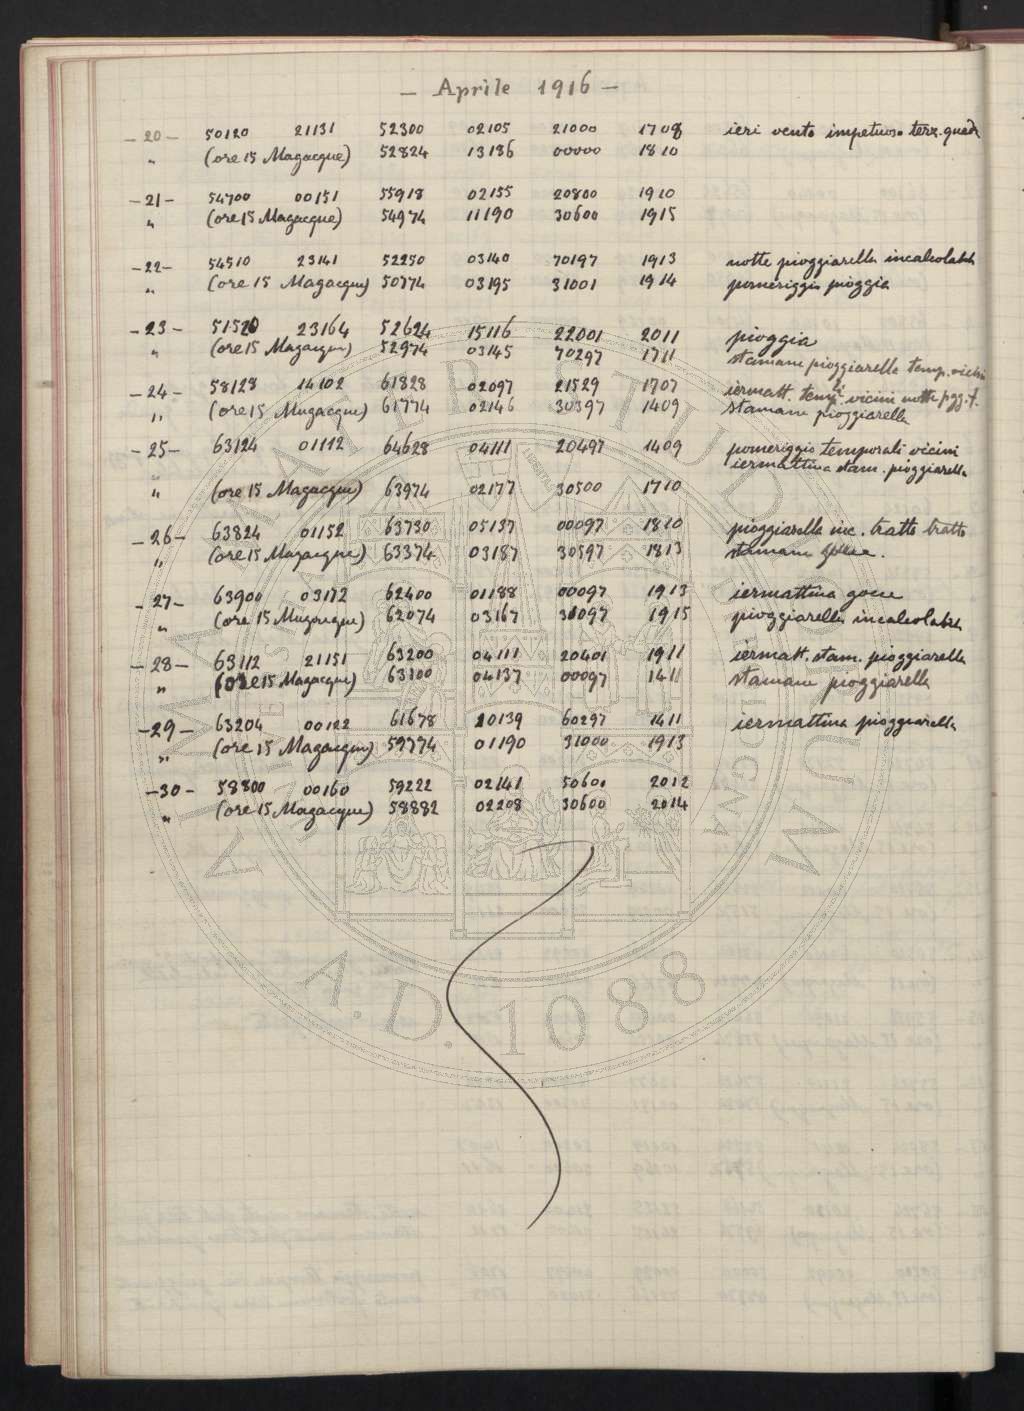 – Aprile 1916 –
– 20 – 50120 21131 52300 02105 21000 1708 ieri vento impetuoso terz. quadr
" (ore 15 Magacque) 52824 13186 00000 1810
– 21 – 54700 00151 55918 02155 20800 1910
" (ore 15 Magacque) 54974 11190 30600 1915
– 22 – 54510 23141 52250 03140 70197 1913 notte pioggiarella incalcolabile
" (ore 15 Magacque) 50774 03195 31001 1914 pomeriggio pioggia
– 23 – 51520 23164 52624 15116 22001 2011 pioggia
" (ore 15 Magacque) 52974 03145 70297 1711 stamane pioggiarella temp. vicini
– 24 – 58128 14102 61828 02097 21529 1707 iermatt. temp. vicini notte pgg.f.
" (ore 15 Magacque) 61774 02146 30397 1409 stamane pioggiarella
– 25 – 63124 01112 64628 04111 20497 1409 pomeriggio temporali vicini
iermattina stam. pioggiarella
" (ore 15 Magacque) 63974 02177 30500 1710
– 26 – 63824 01152 63730 05137 00097 1810 pioggiarella inc. tratto tratto
" (ore 15 Magacque) 63374 03187 30597 1813 stamane gocce.
– 27 – 63900 03172 62400 01188 00097 1913 iermattina gocce
" (ore 15 Magacque) 62074 03167 31097 1915 pioggiarella incalcolabile
– 28 – 63112 21151 63200 04111 20401 1911 iermatt. stam. pioggiarella
" (ore 15 Magacque) 63100 04137 00097 1411 stamane pioggiarella
– 29 – 63204 00122 61678 20139 60297 1411 iermattina pioggiarella
" (ore 15 Magacque) 59774 01190 31000 1913
– 30 – 58800 00160 59222 02141 50601 2012
" (ore 15 Magacque) 58882 02208 30600 2014
ALMA MATER STUDIORUM
A.D. 1088